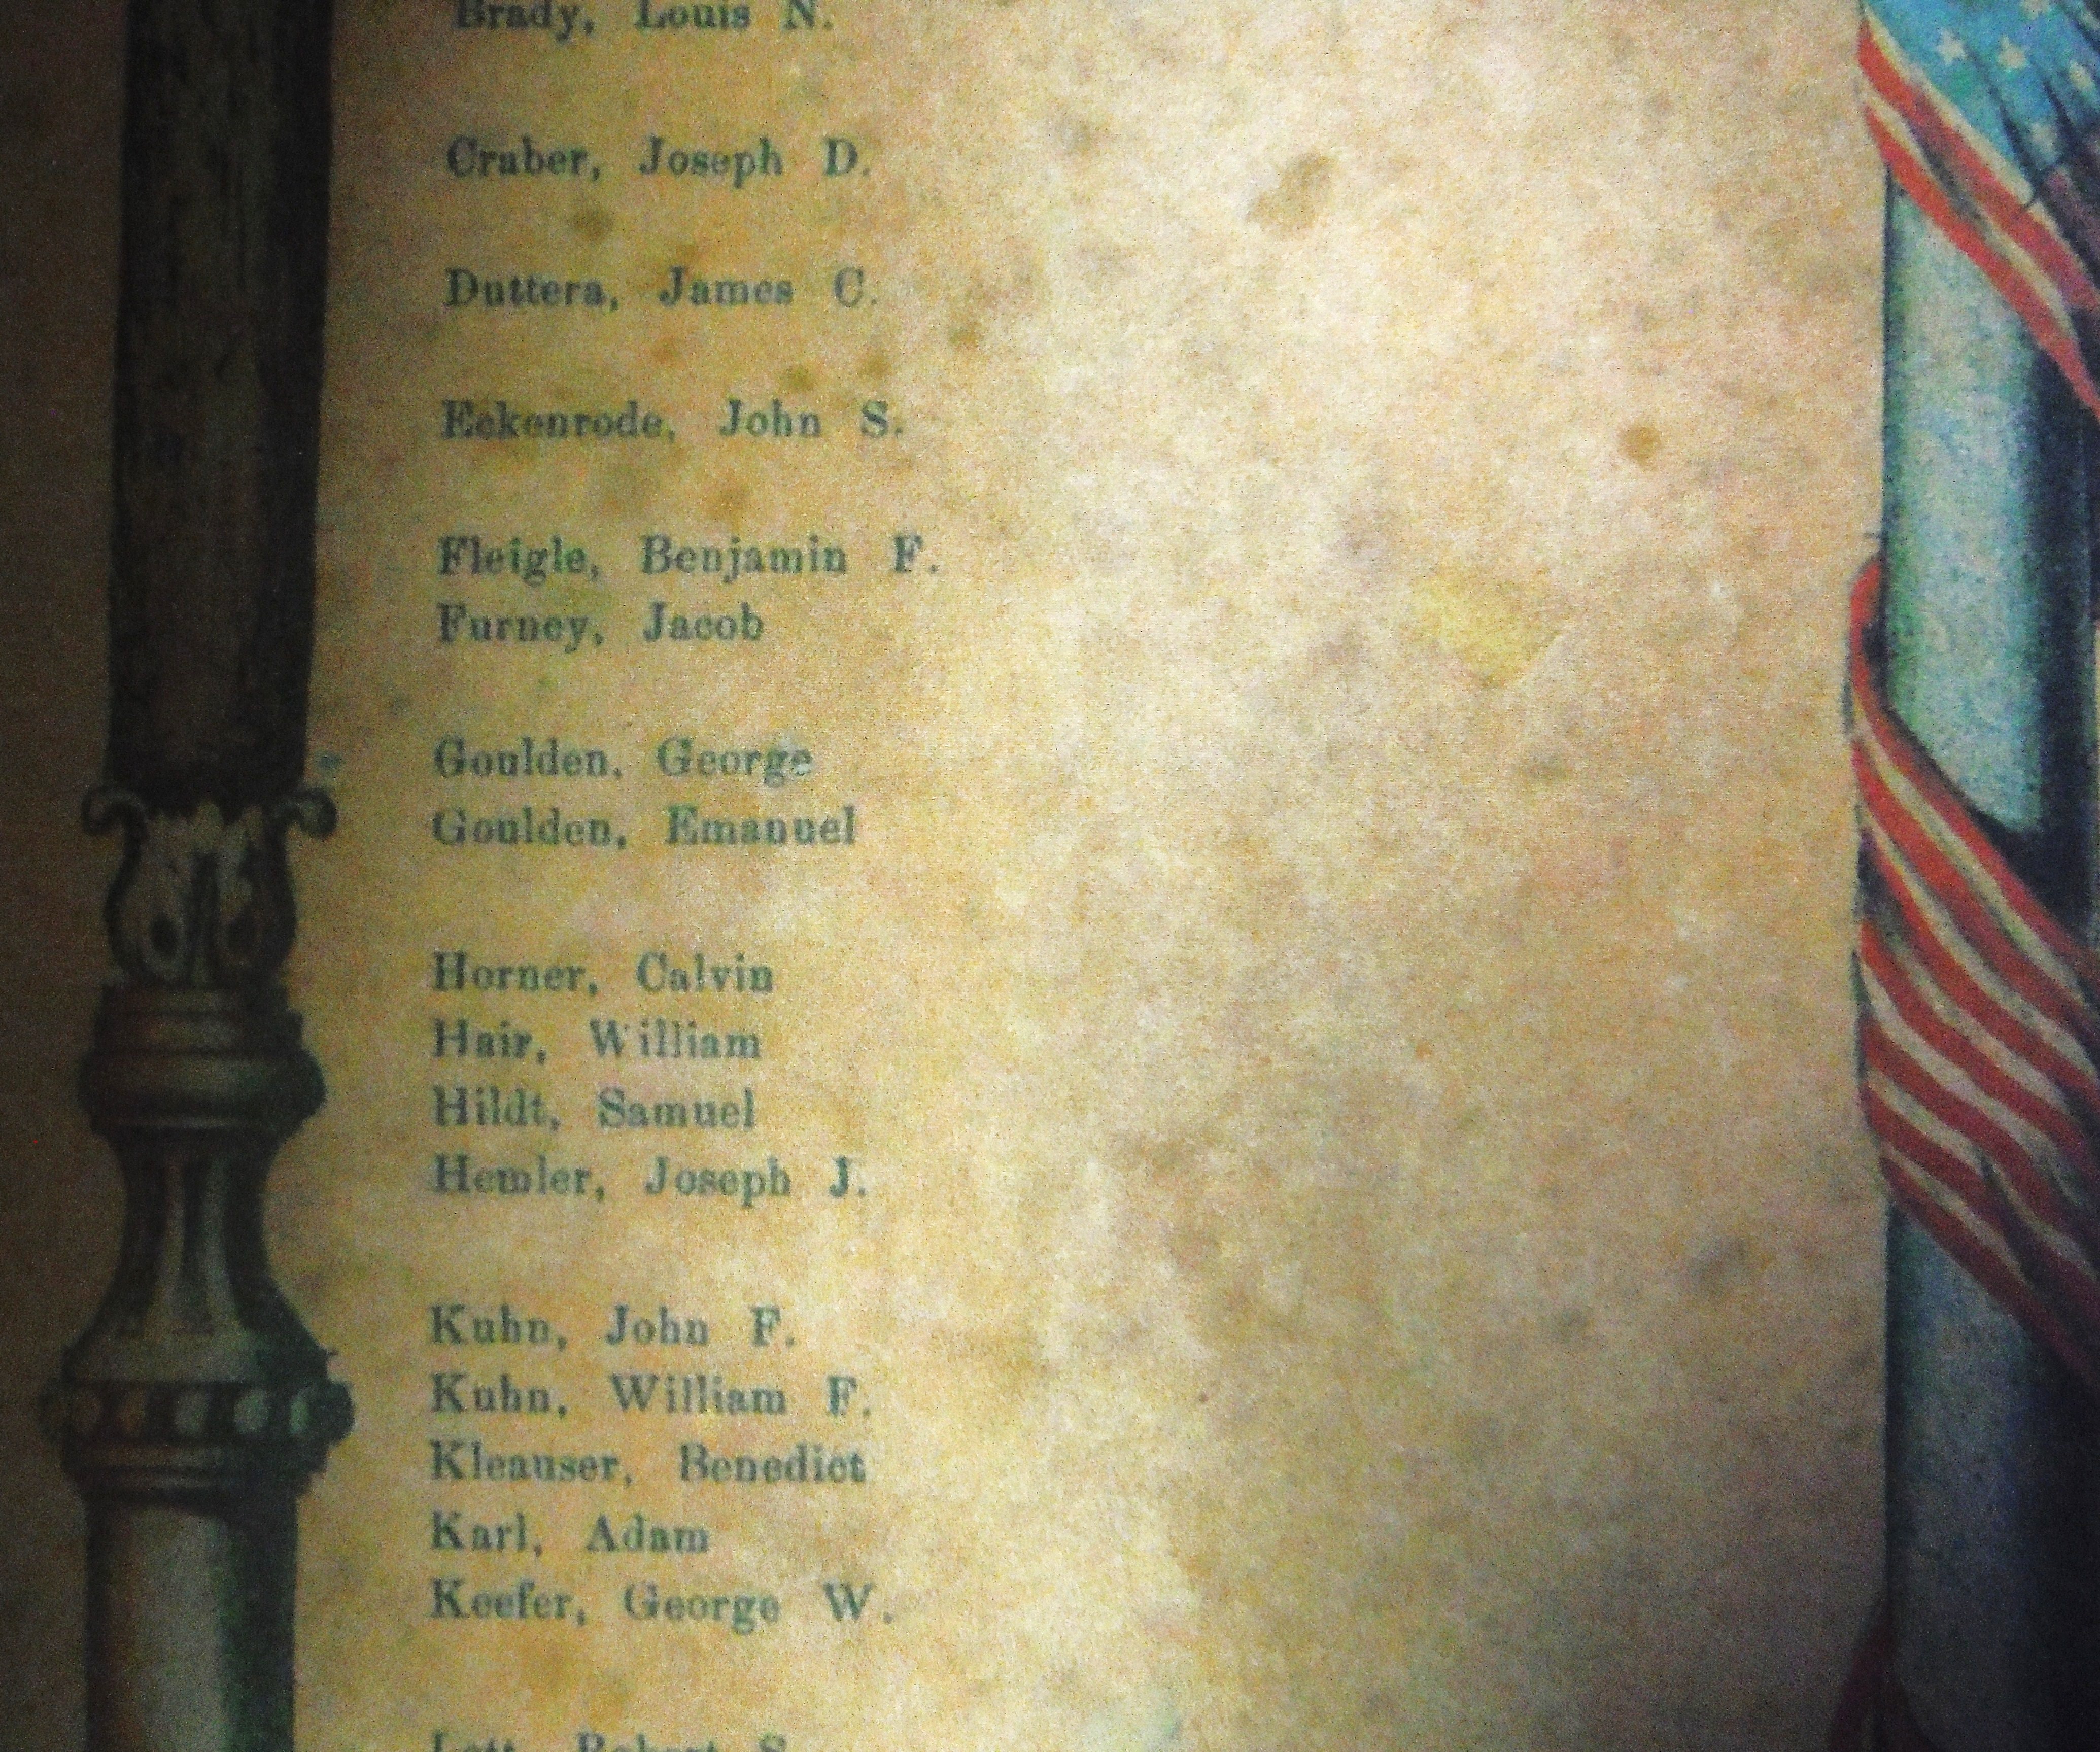 Brady, Louis N.
Craber, Joseph D.
Duttera, James C.
Eckenrode, John S.
Fleigle, Benjamin F.
Furney, Jacob
Goulden, George
Goulden, Emanuel
Horner, Calvin
Hair, William
Hildt, Samuel
Hemler, Joseph J.
Kuhn, John F.
Kuhn, William F.
Kleauser, Benedict
Karl, Adam
Keefer, George W.
Lott, Robert S.